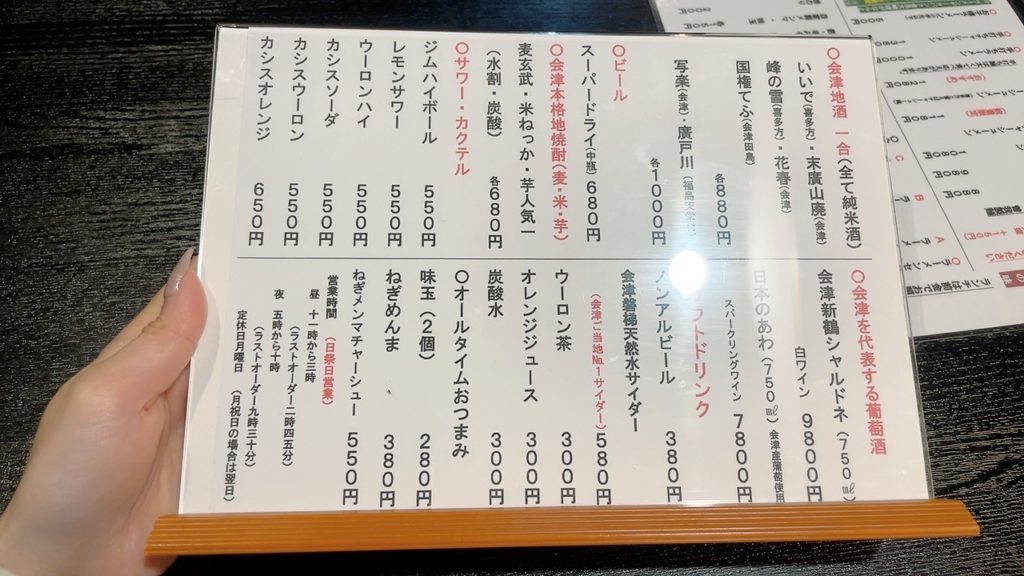 〇会津地酒 一合(全て純米酒)
いいで(喜多方)・末廣山廃(会津)
峰の雪(喜多方)・花春(会津)
国権てふ(会津田島)
各880円
写楽(会津)・廣戸川(福島天栄村)
各1000円
〇ビール
スーパードライ(中瓶)680円
〇会津本格地焼酎(麦・米・芋)
麦玄武・米ねっか・芋人気一
(水割・炭酸) 各680円
〇サワー・カクテル
ジムハイボール 550円
レモンサワー 550円
ウーロンハイ 550円
カシスソーダ 550円
カシスウーロン 550円
カシスオレンジ 650円
〇会津を代表する葡萄酒
会津新鶴シャルドネ(750㎖)
白ワイン 9800円
日本のあわ(750㎖)会津産葡萄使用
スパークリングワイン 7800円
フトドリンク
ノンアルビール 380円
会津磐梯天然水サイダー
(会津ご当地№1サイダー)580円
ウーロン茶 300円
オレンジジュース 300円
炭酸水 300円
〇オールタイムおつまみ
味玉(2個) 280円
ねぎめんま 380円
ねぎメンマチャーシュー 550円
営業時間 (日祭日営業)
昼 十一時から三時
(ラストオーダー二時四五分)
夜 五時から十時
(ラストオーダー九時三十分)
定休日月曜日 (月祝日の場合は翌日)